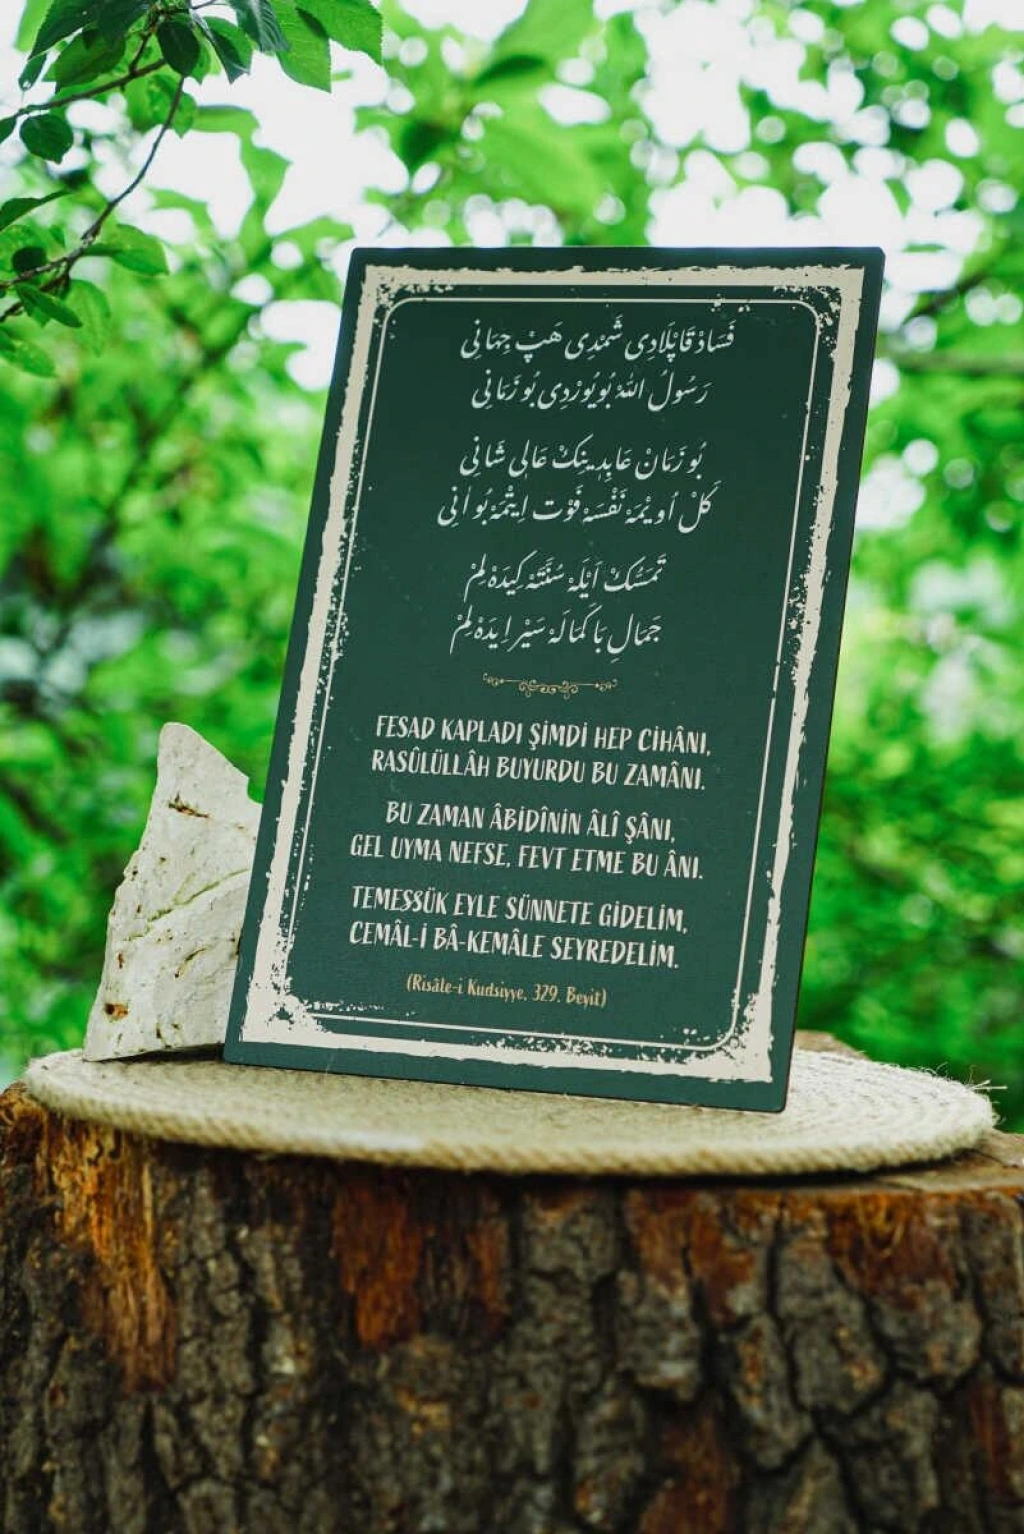 فَسَادْ قَاپْلَادِی شَمْدِی هَپْ جِهَانِی
رَسُولُ اللهْ بُویُورْدِی بُو زَمَانِی
بُو زَمَانْ عَابِدِینِكْ عَالِی شَانِی
كَلْ اُویْمَهْ نَفْسَهْ فَوْت اِیتْمَهْ بُو اٰنِی
تَمَسُّكْ اَیْلَهْ سُنَّتَهْ كِیدَهْ لِمْ
جَمَالِ بَا كَمَالَهْ سَیْر اِیدَهْ لِمْ
FESAD KAPLADI ŞİMDİ HEP CİHÂNI,
RASÛLÜLLÂH BUYURDU BU ZAMÂNI.
BU ZAMAN ÂBİDÎNİN ÂLÎ ŞÂNI,
GEL UYMA NEFSE, FEVT ETME BU ÂNI.
TEMESSÜK EYLE SÜNNETE GİDELİM,
CEMÂL-İ BÂ-KEMÂLE SEYREDELİM.
(Risâle-i Kudsiyye, 329. Beyit)